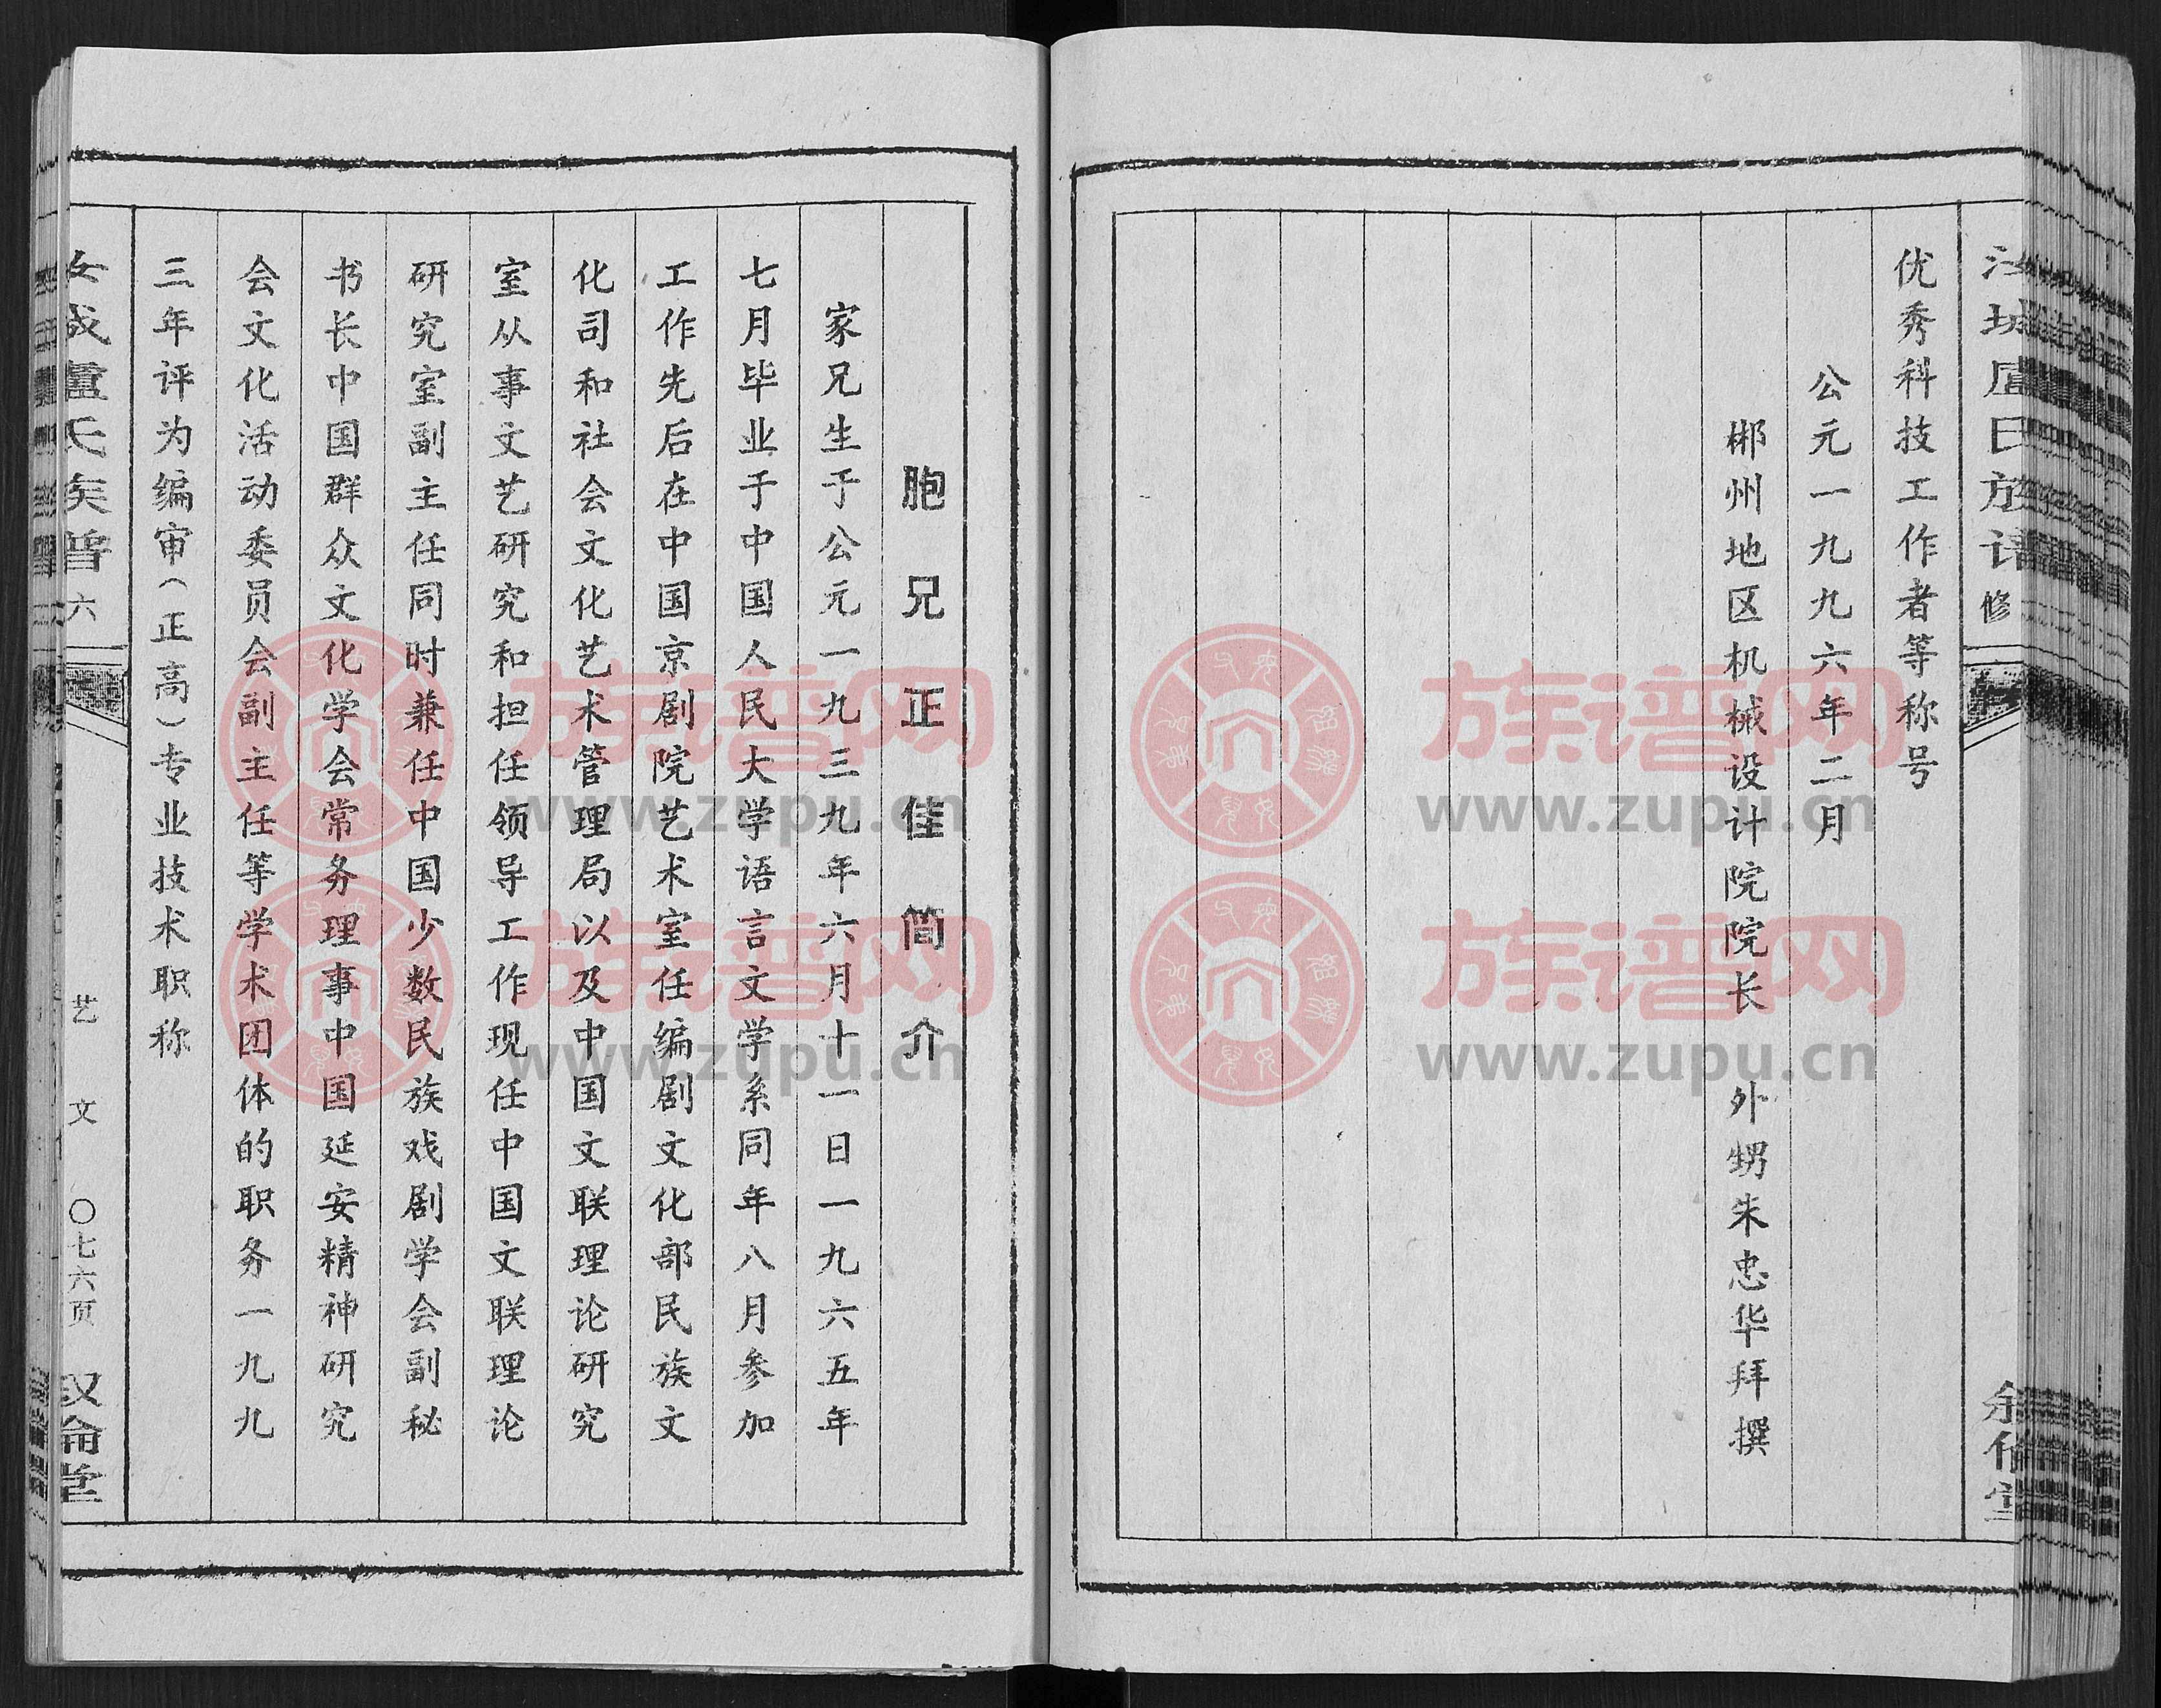 优秀科技工作者等称号
公元一九九六年二月
郴州地区机械设计院院长 外甥朱忠华拜撰
修
胞兄正佳简介
家兄生于公元一九三九年六月十一日一九六五年
七月毕业于中国人民大学语言文学系同年八月参加
工作先后在中国京剧院艺术室任编剧文化部民族文
化司和社会文化艺术管理局以及中国文联理论研究
室从事文艺研究和担任领导工作现任中国文联理论
研究室副主任同时兼任中国少数民族戏剧学会副秘
书长中国群众文化学会常务理事中国延安精神研究
会文化活动委员会副主任等学术团体的职务一九九
三年评为编审（正高）专业技术职称
六
艺文 〇七六页
族谱网
www.zupu.cn
族谱网
www.zupu.cn
族谱网
www.zupu.cn
族谱网
www.zupu.cn